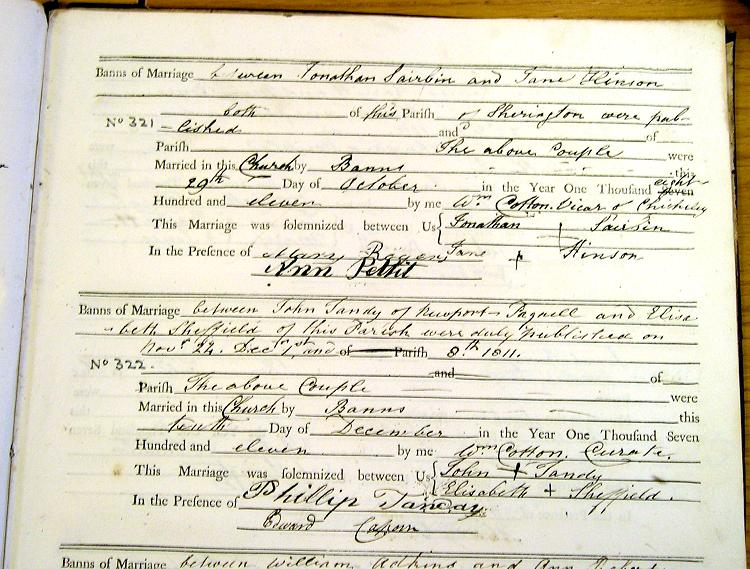 Banns of Marriage between Jonathan Sairbin and Jane Hinson
both of this Parish of Sherington were pub-
No 321 -lished and of
Parish The above Couple were
Married in this Church by Banns this
29th Day of October in the Year One Thousand eight Seven
Hundred and eleven by me Wm Cotton. Vicar of Chicheley
This Marriage was solemnized between Us Jonathan + Sairbin
In the Presence of Mary Jane + Hinson
Ann Pettit
Banns of Marriage between John Tandy of Newport-Pagnell and Elisa
-beth Sheffield of this Parish were duly published on
Novr 24. Decr 1st and of Parish 8th 1811.
No 322. and of
Parish The above Couple were
Married in this Church by Banns this
tenth Day of December in the Year One Thousand Seven
Hundred and eleven by me Wm Cotton. Curate.
This Marriage was solemnized between Us John + Tandy
In the Presence of Phillip Tandy. Elisabeth + Sheffield.
Edward
Banns of Marriage between William Adkins and Ann